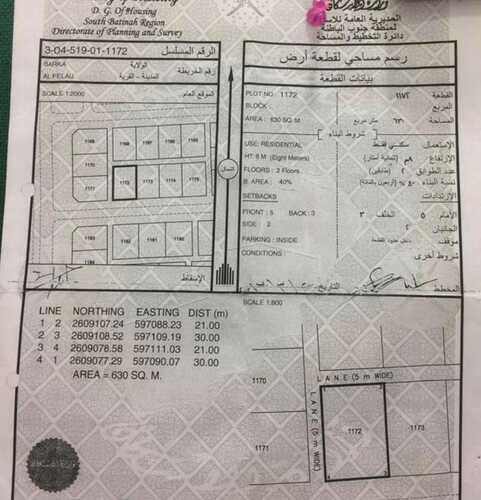 D. G. Of Housing
South Batinah Region
Directorate of Planning and Survey
المديرية العامة للاسكان
لمنطقة جنوب الباطنة
دائرة التخطيط والمساحة
3-04-519-01-1172
الرقم المسلسل
رسم مساحي لقطعة أرض
BARKA
الولاية
AL FELAIJ
المدينة - القرية
رقم الخريطة
SCALE 1:2000
الموقع العام
بيانات القطعة
PLOT NO : 1172
١١٧٢ القطعة
BLOCK :
المربع
AREA : 630 SQ. M.
٦٣٠ متر مربع المساحة
شروط البناء
USE: RESIDENTIAL
سكني فقط الإستعمال
HT: 8 M (Eight Meters)
٨م (ثمانية أمتار) الإرتفاع
FLOORS : 2 Floors
٢ (طابقين) عدد الطوابق
B. AREA : 40%
نسبة البناء
SETBACKS
الإرتدادات
FRONT : 5 BACK : 3
٣ الخلف ٥ الأمام
SIDE : 2
٢ الجانبان
PARKING : INSIDE
داخل حدود القطعة موقف
CONDITIONS :
شروط أخرى
1169
1170
1171
1172
1173
1174
1175
1181
1182
1183
الشمال
الإسقاط
التاريخ
المخطط
SCALE 1:500
LINE NORTHING EASTING DIST (m)
1 2 2609107.24 597088.23 21.00
2 3 2609108.52 597109.19 30.00
3 4 2609078.58 597111.03 21.00
4 1 2609077.29 597090.07 30.00
AREA = 630 SQ. M.
LANE (5 m WIDE)
LANE (5 m WIDE)
1170
1171
1172
1173